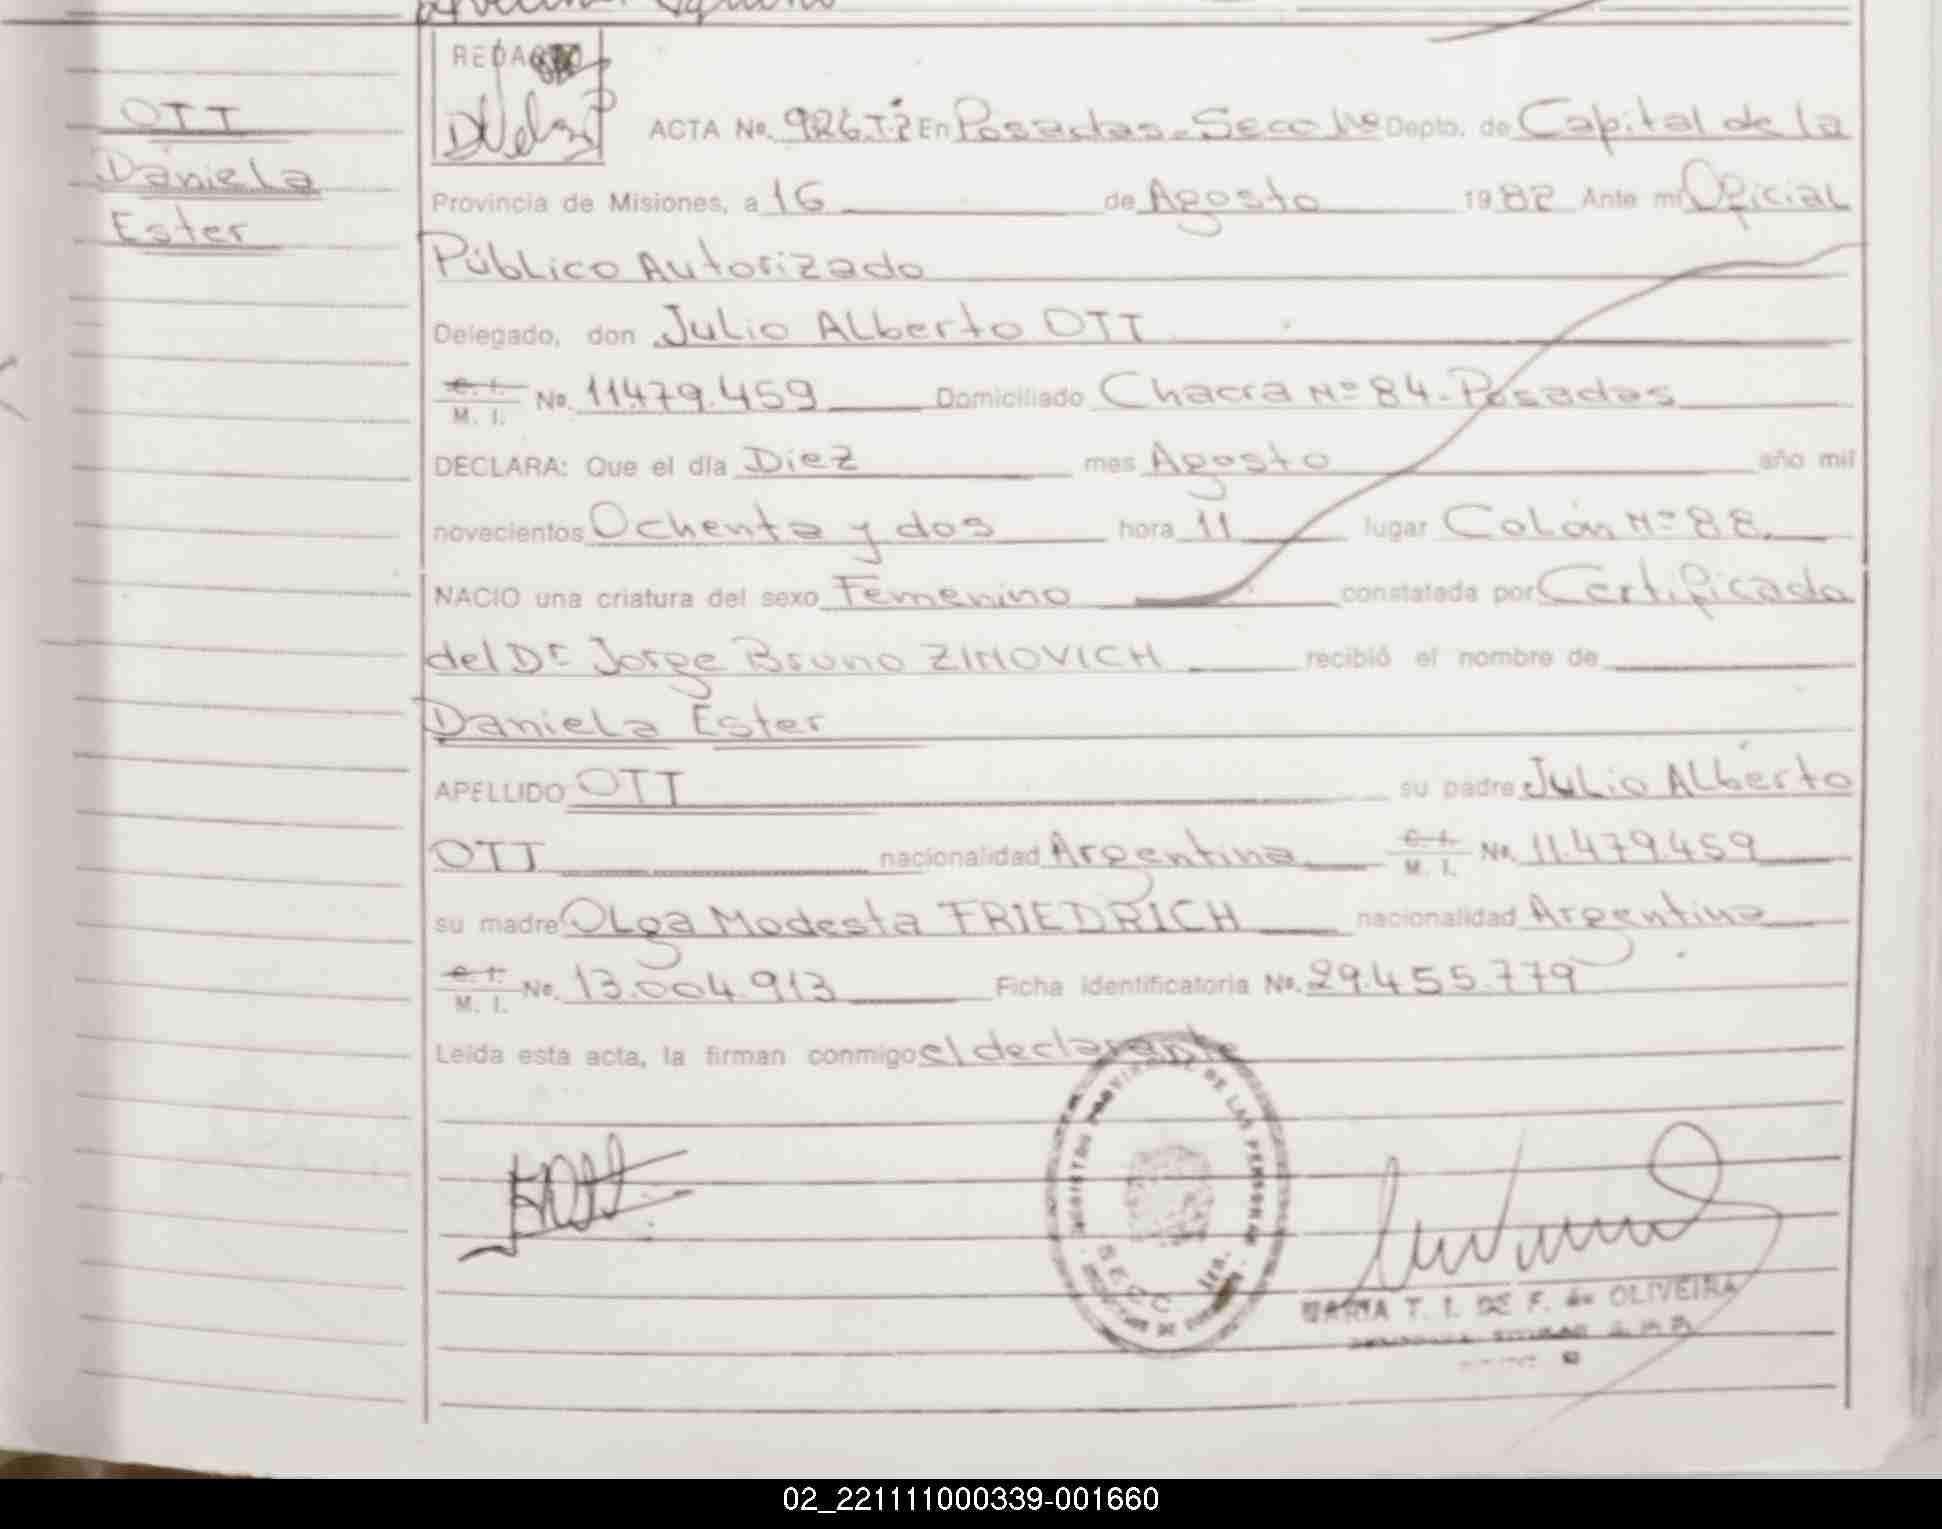 OTT
Daniela
Ester
REDACTO
ACTA No. 926.T.2 En Posadas - Secc 1ra Depto. de Capital de la
Provincia de Misiones, a 16 de Agosto 1982 Ante mi Oficial
Público Autorizado
Delegado, don Julio Alberto OTT
C. I.
M. I. No. 11.479.459 Domiciliado Chacra Nº 84 - Posadas
DECLARA: Que el día Diez mes Agosto año mil
novecientos Ochenta y dos hora 11 lugar Colón Nº 88.
NACIO una criatura del sexo Femenino constatada por Certificado
del Dr Jorge Bruno ZIMOVICH recibió el nombre de
Daniela Ester
APELLIDO OTT su padre Julio Alberto
OTT nacionalidad Argentina C. I.
M. I. No. 11.479.459
su madre Olga Modesta FRIEDRICH nacionalidad Argentina
C. I.
M. I. No. 13.004.913 Ficha identificatoria No. 29.455.779
Leída esta acta, la firman conmigo el declarante
PROVINCIAL DE LAS PERSONAS
SECC 1ra.
MARIA T. I. DE F. de OLIVEIRA
02_221111000339-001660